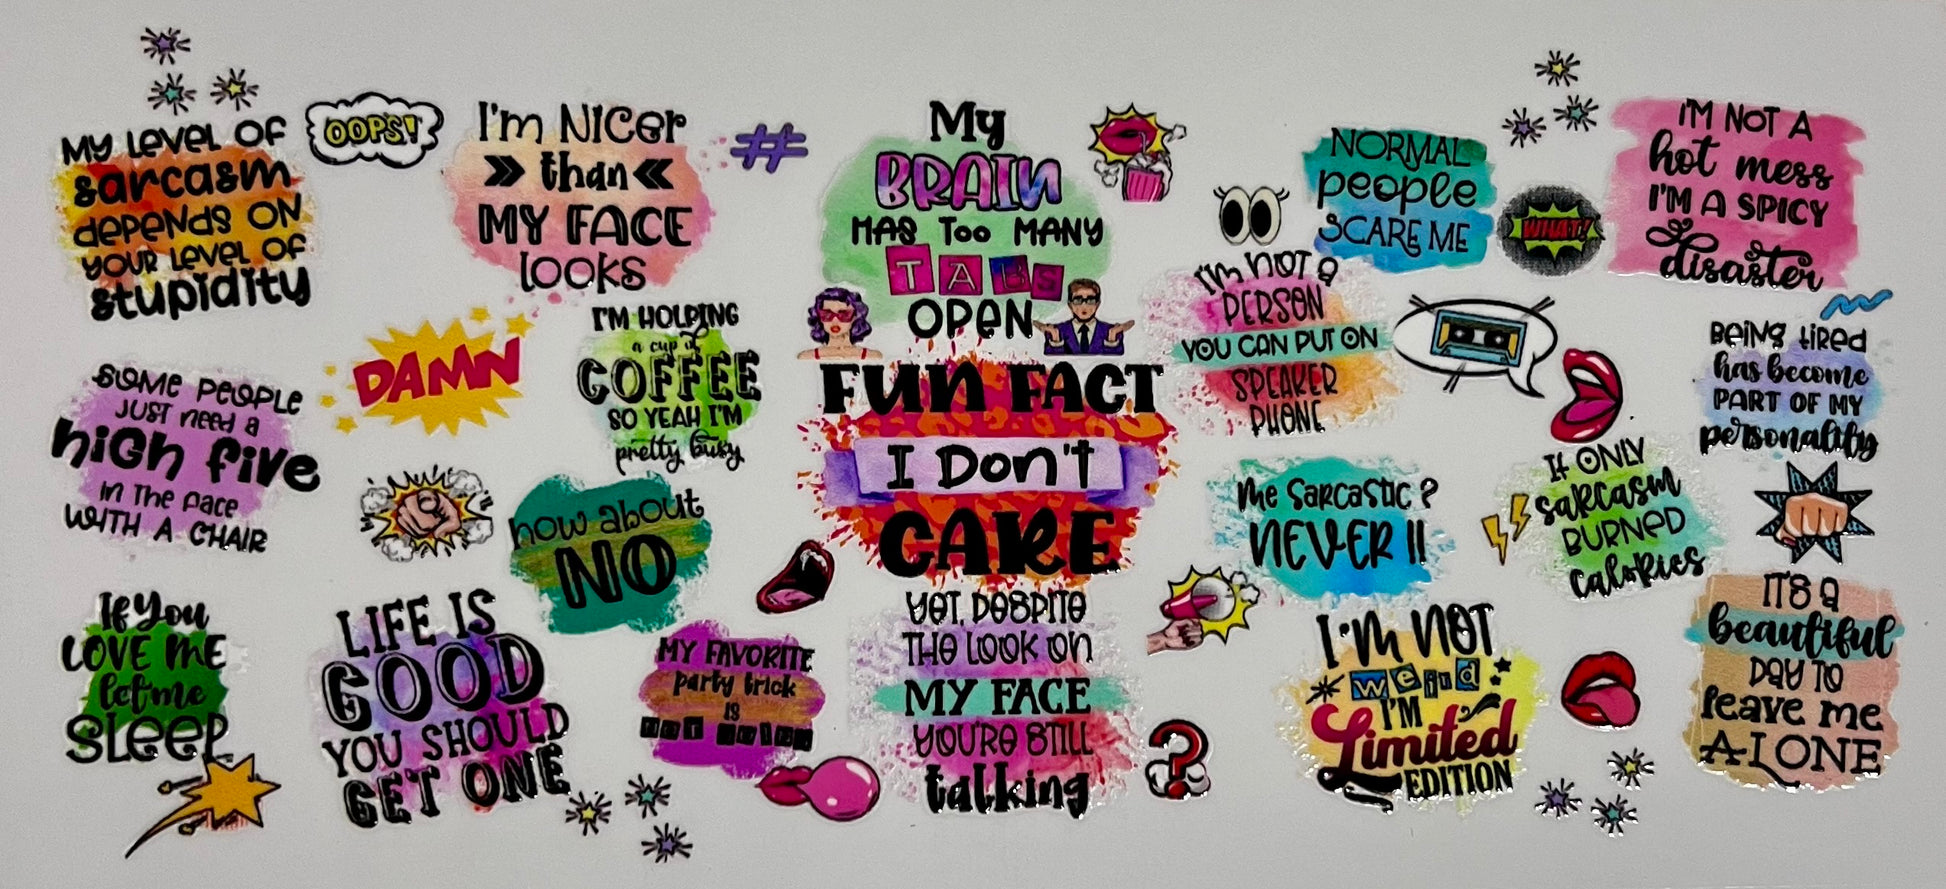 MY LEVEL OF
sarcasm
DEPENDS ON
YOUR LEVEL OF
stupidity
OOPS!
I'm NICER
than
MY FACE
looks
#
My
BRAIN
HAS TOO MANY
TABS
OPEN
NORMAL
people
SCARE ME
WHAT!
I'M NOT A
hot mess
I'M A SPICY
disaster
I'm NOT a
PERSON
YOU CAN PUT ON
SPEAKER
PHONE
BEING tired
has become
PART OF MY
personality
SOME PEOPLE
JUST need a
HIGH FIVE
IN THE FACE
WITH A CHAIR
DAMN
I'M HOLDING
a cup of
COFFEE
SO YEAH I'M
pretty busy
FUN FACT
I Don't
CARE
how about
NO
Me Sarcastic ?
NEVER !!
If ONLY
sarcasm
BURNED
calories
If You
LOVE ME
let me
SLEEP
LIFE IS
GOOD
YOU SHOULD
GET ONE
MY FAVORITE
party trick
IS
not going
YET, DESPITE
THE LOOK ON
MY FACE
YOU'RE STILL
talking
?
I'M NOT
weird
I'M
Limited
EDITION
IT'S a
beautiful
DAY TO
leave me
ALONE